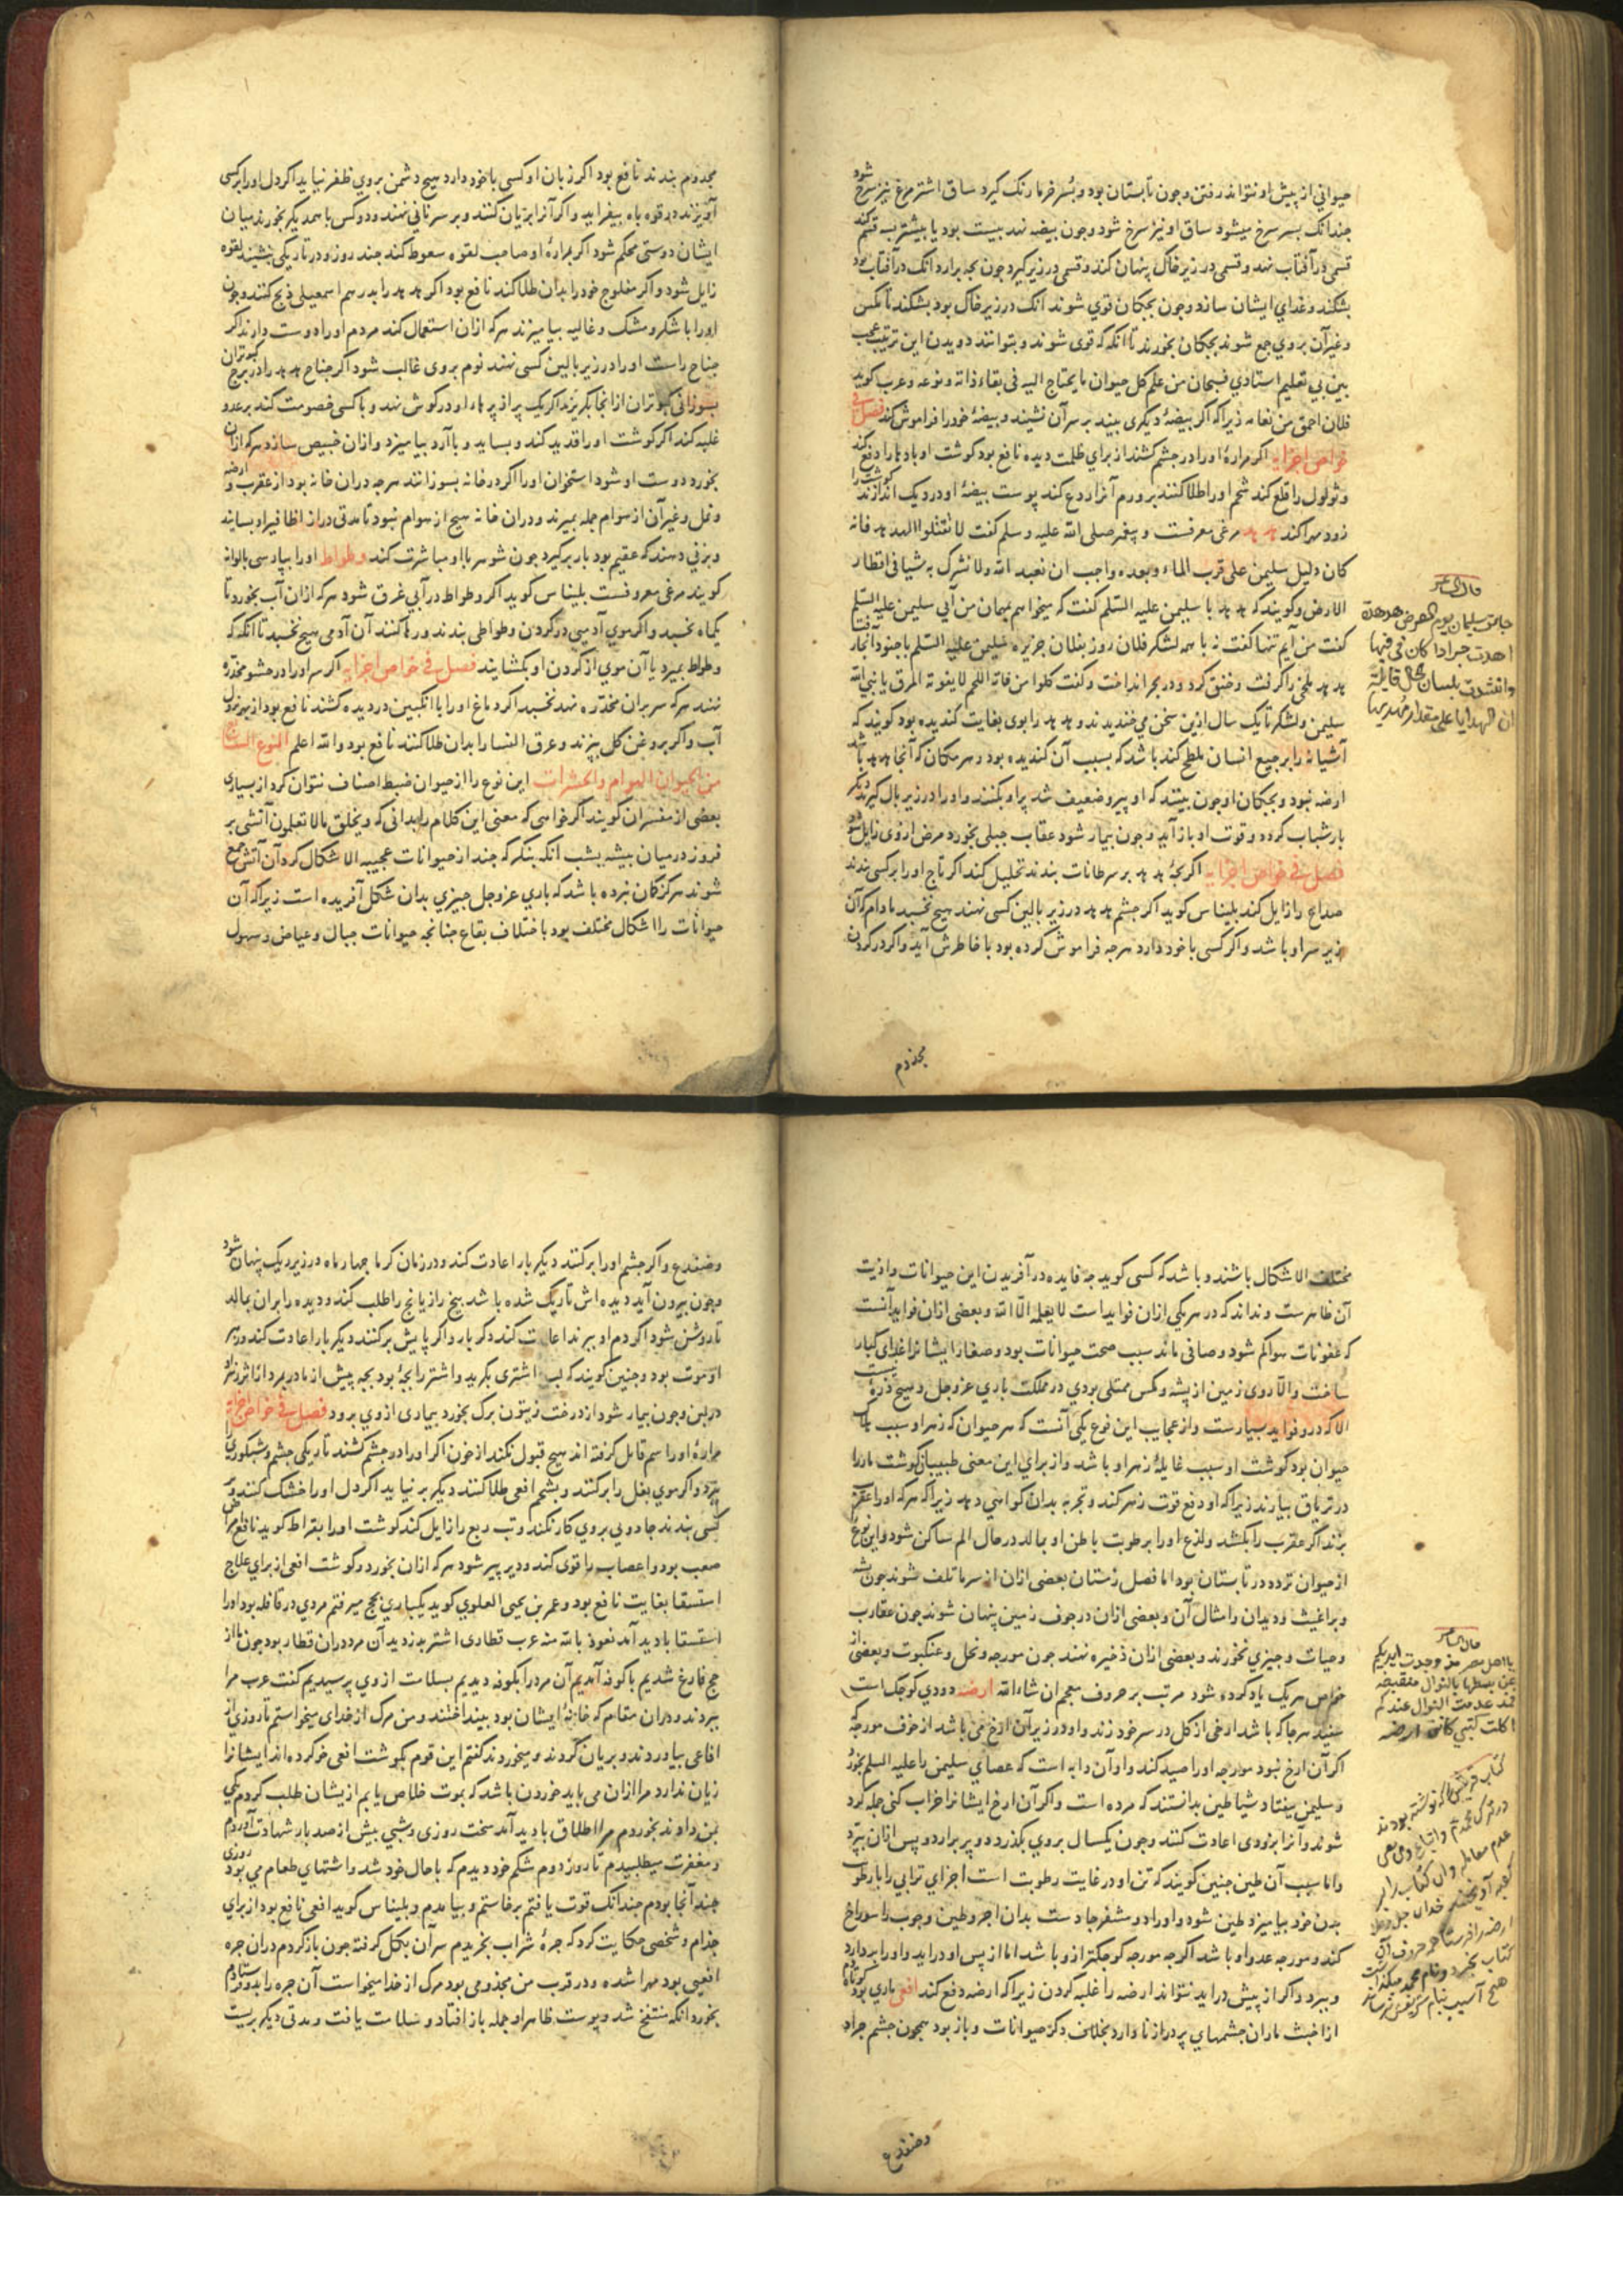 حیوانی از پیش او نتواند رفتن و جون تابستان بود و بُسر خرما رنک کیرد ساق اشتر مرغ نیز سرخ شود
جندانک بسر سرخ میشود ساق او نیز سرخ شود و جون بیضه نهد بیست بود یا بیشتر بسه قسم کند
قسمی در آفتاب نهد و قسمی در زیر خاک پنهان کند و قسمی در زیر کیرد جون بجه برارد آنک در آفتاب بود
بشکند و غدای ایشان سازد و جون بجکان قوی شوند آنک در زیر خاک بود بشکند تا مکس
و غیر آن بروی جمع شوند بجکان بخورند تا انکه که قوی شوند و بتوانند دویدن این ترتیب عجب
بین بی تعلیم استادی فسبحان من علم کل حیوان ما یحتاج الیه فی بقاء ذاته و نوعه و عرب کوید
فلان احمق من نعامه زیرا که اکر بیضهٔ دیکری بیند بر سر آن نشیند و بیضهٔ خود را فراموش کند فصل فی
خواص اجزایه اکر مرارهٔ او را در جشم کشند از برای ظلمت دیده نافع بود کوشت او بادها را دفع کند
و ثولول را قلع کند شحم او را طلا کنند بر ورم آنرا ردع کند پوست بیضهٔ او در دیک اندازند کوشت را
زود مهرا کند هدهد مرغی معرفست و پیغمبر صلی الله علیه و سلم کفت لا تقتلوا الهدهد فانه
کان دلیل سلیمن علی قرب الماء و بعده واجب ان نعبد الله ولا نشرک به شیا فی اقطار
الارض و کویند که هدهد با سلیمن علیه السلم کفت که میخواهم بمهمان من آیی سلیمن علیه السلم
کفت من آیم تنها کفت نه با همه لشکر فلان روز بفلان جزیره سلیمن علیه السلم با جنود آنجا رفت
هدهد ملخی را کرفت و خنق کرد و در بحر انداخت و کفت کلوا من فاته اللحم لا یفوته المرق یا نبی الله
سلیمن و لشکر تا یک سال ازین سخن می خندیدند و هدهد را بوی بغایت کندیده بود کویند که
آشیانه را برجیع انسان ملطخ کند باشد که بسبب آن کندیده بود و هر مکان که آنجا هدهد باشد
ارضه نبود و بجکان او جون بینند که او پیر و ضعیف شد پر او بکنند و او را در زیر بال کیرند دیکر
بار شباب کردد و قوت او باز آید و جون بیمار شود عقاب جبلی بخورد مرض ازوی زایل شود
فصل فی خواص اجزایه اکر بجهٔ هدهد بر سرطانات بندند تحلیل کند اکر تاج او را بر کسی بندند
صداع را زایل کند بلیناس کوید اکر جشم هدهد در زیر بالین کسی نهند هیج نخسبد مادام که آن
زیر سر او باشد و اکر کسی با خود دارد هرجه فراموش کرده بود با خاطرش آید و اکر در کردن
مجذوم
قال الشاعر
جات سلیمان یوم العرض هدهدة
اهدت جرادا کان فی فیها
وانشدت بلسان حال قایلة
ان الهدایا علی مقدار مهدیها
مجذوم بندند نافع بود اکر زبان او کسی با خود دارد هیج دشمن بروی ظفر نیابد اکر دل او را بر کسی
آویزند در قوه باه بیفزاید و اکر آنرا بریان کنند و بر سر نانی نهند و دو کس با همدیکر بخورند میان
ایشان دوستی محکم شود اکر بمرارهٔ او صاحب لقوه سعوط کند جند روز و در تاریکی نشیند لقوه
زایل شود و اکر مفلوج خود را بدان طلا کند نافع بود اکر هدهد را بدرهم اسمعیلی ذبح کنند و جون
او را با شکر و مشک و غالیه بیامیزند هر که ازان استعمال کند مردم او را دوست دارند اکر
جناح راست او را در زیر بالین کسی نهند نوم بروی غالب شود اکر جناح هدهد را در برج کبوتران
بسوزانی کبوتران از انجا بکریزند اکر یک پر از پرهاء او در کوش نهد و با کسی خصومت کند بر عدو
غلبه کند اکر کوشت او را قدید کند و بساید و با آرد بیامیزد و ازان خبیص سازد هر که ازان
بخورد دوست او شود استخوان او را اکر در خانه بسوزانند هرجه دران خانه بود از عقرب و ارضه
و نمل و غیر آن از هوام جمله بمیرند و دران خانه هیج از هوام نبود تا مدتی دراز اظافیر او بسایند
و بزنی دهند که عقیم بود بار بر کیرد جون شوهر با او مباشرت کند وطواط او را بپارسی بالوانه
کویند مرغی معروفست بلیناس کوید اکر وطواط در آبی غرق شود هر که ازان آب بخورد تا
یکماه نخسبد و اکر موی آدمیی در کردن وطواطی بندند و رها کنند آن آدمی هیج نخسبد تا انکه که
وطواط بمیرد یا آن موی از کردن او بکشایند فصل فی خواص اجزایه اکر سر او را در حشو مخدّه
نهند هر که سر بران مخدّه نهد نخسبد اکر دماغ او را با انکبین در دیده کشند نافع بود از بهر نزول
آب و اکر بروغن کل بپزند و عرق النسا را بدان طلا کنند نافع بود و الله اعلم النوع السابع
من الحیوان الهوام والحشرات این نوع را از حیوان ضبط اصناف نتوان کرد از بسیاری
بعضی از مفسران کویند اکر خواهی که معنی این کلام را بدانی که ویخلق ما لا تعلمون آتشی بر
فروز در میان بیشه بشب آنکه بنکر که جند از حیوانات عجیبه الاشکال کرد آن آتش جمع
شوند هرکز کمان نبرده باشد که باری عز و جل جیزی بدان شکل آفریده است زیرا که آن
حیوانات را اشکال مختلف بود باختلاف بقاع جنانجه حیوانات جبال و غیاض و سهول
مختلف الاشکال باشند و باشد که کسی کوید جه فایده در آفریدن این حیوانات و اذیت
آن ظاهرست و نداند که در هر یکی ازان فوایداست لا یعلمه الا الله و بعضی ازان فواید آنست
که عفونات هوا کم شود و صافی ماند سبب صحت حیوانات بود و صغار ایشانرا غدای کبار
ساخت و الّا روی زمین از پشه و مکس ممتلی بودی در مملکت باری عز و جل و هیج ذرهٔ نیست
الا که درو فواید بسیارست و از عجایب این نوع یکی آنست که هر حیوان که زهر او سبب هلاک
حیوان بود کوشت او سبب غایلهٔ زهر او باشد و از برای این معنی طبیبان کوشت مار را
در تریاق بیارند زیرا که او دفع قوت زهر کند و تجربه بدان کواهی دهد زیرا که هر که او را عقرب
بزند اکر عقرب را بکشد و لذع او را برطوبت باطن او بمالد در حال الم ساکن شود و این نوع
از حیوان تردد در تابستان بود اما فصل زمستان بعضی ازان از سرما تلف شوند جون پشه
و براغیث و دیدان و امثال آن و بعضی ازان در جوف زمین پنهان شوند جون عقارب
و حیات و جیزی نخورند و بعضی ازان ذخیره نهند جون مورجه و نحل و عنکبوت و بعضی از
خواص هر یک یاد کرده شود مرتب بر حروف معجم ان شاءالله ارضه دودی کوجک است
سفید هرجا که باشد ازخی از کل در سر خود زند و او در زیر آن ازخ می باشد از خوف مورجه
اکر آن ازخ نبود مورجه او را صید کند و او آن دابه است که عصای سلیمن را علیه السلم بخورد
و سلیمن بیفتاد و شیاطین بدانستند که مرده است و اکر آن ازخ ایشانرا خراب کنی جمله کرد
شوند و آنرا بزودی اعادت کنند و جون یکسال بروی بکذرد دو پر برارد و پس ازان بپرد
و اما سبب آن طین جنین کویند که تن او در غایت رطوبت است اجزای ترابی را با رطوبت
بدن خود بیامیزد طین شود و او را دو مشفر حادست بدان اجر و طین و جوب را سوراخ
کند و مورجه عدو او باشد اکرجه مورجه کوجکتر ازو باشد اما از پس او دراید و او را بردارد
و ببرد و اکر از پیش دراید نتواند ارضه را غلبه کردن زیرا که ارضه دفع کند افعی ماری بود کوتاه دم
از اخبث ماران جشمهای پر دراز نا دارد بخلاف دکر حیوانات و باز بود همجون جشم جراد
وضفدع
قال الشاعر
یا اهل مصر وجدت ایدیکم
عن بسطها بالنوال منقبضه
فمذ عدمت النوال عندکم
اکلت کتبی کاننی ارضه
کتاب قریش را که نوشته بودند
وضفدع و اکر جشم او را بر کنند دیکر بار اعادت کند و در زمان کرما جهار ماه در زیر ریک پنهان شود
و جون بیرون آید دیده اش تاریک شده باشد بیخ رازیانج را طلب کند و دیده را بران بمالد
تا روشن شود اکر دم او ببرند اعادت کند دکر بار و اکر پایش بر کنند دیکر بار اعادت کند و زهر
او موت بود و جنین کویند که لب اشتری بکزید و اشتر را بجهٔ بود بجه پیش از مادر بمرد از اثر زهر
در لبن و جون بیمار شود از درخت زیتون برک بخورد بیماری ازوی برود فصل فی خواص اجزایه
مرارهٔ او را سم قاتل کرفته اند هیج قبول نکند از خون اکر او را در جشم کشند تاریکی جشم و شبکوری را
ببرد و اکر موی بغل را بر کنند و بشحم افعی طلا کنند دیکر بر نیاید اکر دل او را خشک کنند و بر
کسی بندند جادویی بروی کار نکند و تب ربع را زایل کند کوشت او را بقراط کوید نافع امراض
صعب بود و اعصاب را قوی کند و دیر پیر شود هر که ازان بخورد و کوشت افعی از برای علاج
استسقا بغایت نافع بود و عمر بن یحیی العلوی کوید یکباری بحج میرفتم مردی در قافله بود او را
استسقا بادید آمد نعوذ بالله منه عرب قطاری اشتر بدزدید آن مرد دران قطار بود جون ما از
حج فارغ شدیم با کوفه آمدیم آن مرد را بکوفه دیدیم بسلامت ازوی پرسیدیم کفت عرب مرا
ببردند و دران مقام که خانهٔ ایشان بود بینداختند و من مرک از خدای میخواستم تا روزی از
افاعی بیاوردند و بریان کردند و میخوردند کفتم این قوم بکوشت افعی خو کرده اند ایشانرا
زیان ندارد مرا ازان می باید خوردن باشد که بموت خلاص یابم ازیشان طلب کردم یکی
بمن دادند بخوردم مرا اطلاق بادید آمد سخت روزی و شبی بیش از صد بار شهادت آوردم
و مغفرت میطلبیدم تا روز دوم شکم خود دیدم که با حال خود شد و اشتهای طعام می بود روزی
جند آنجا بودم جندانک قوت یافتم برخاستم و بیامدم و بلیناس کوید افعی نافع بود از برای
جذام و شخصی حکایت کرد که جرهٔ شراب بخریدم سر آن بکل کرفته جون باز کردم دران جره
افعیی بود مهرا شده و در قرب من مجذومی بود مرک از خدا میخواست آن جره را بدو فرستادم
بخورد آنکه منتفخ شد و پوست ظاهر او جمله باز افتاد و سلامت یافت و مدتی دیکر بزیست